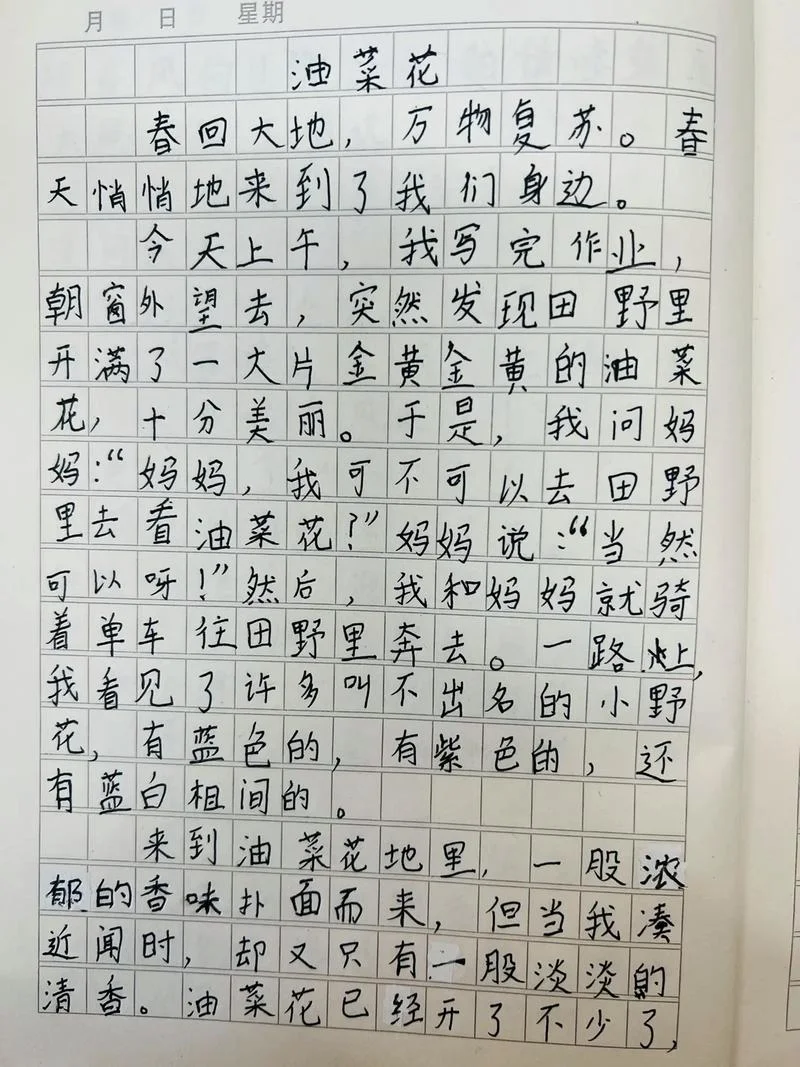 月 日 星期
油菜花
春回大地，万物复苏。春
天悄悄地来到了我们身边。
今天上午，我写完作业，
朝窗外望去，突然发现田野里
开满了一大片金黄金黄的油菜
花，十分美丽。于是，我问妈
妈：“妈妈，我可不可以去田野
里去看油菜花？”妈妈说：“当然
可以呀！”然后，我和妈妈就骑
着单车往田野里奔去。一路上，
我看见了许多叫不出名的小野
花，有蓝色的，有紫色的，还
有蓝白相间的。
来到油菜花地里，一股浓
郁的香味扑面而来，但当我凑
近闻时，却又只有一股淡淡的
清香。油菜花已经开了不少了，